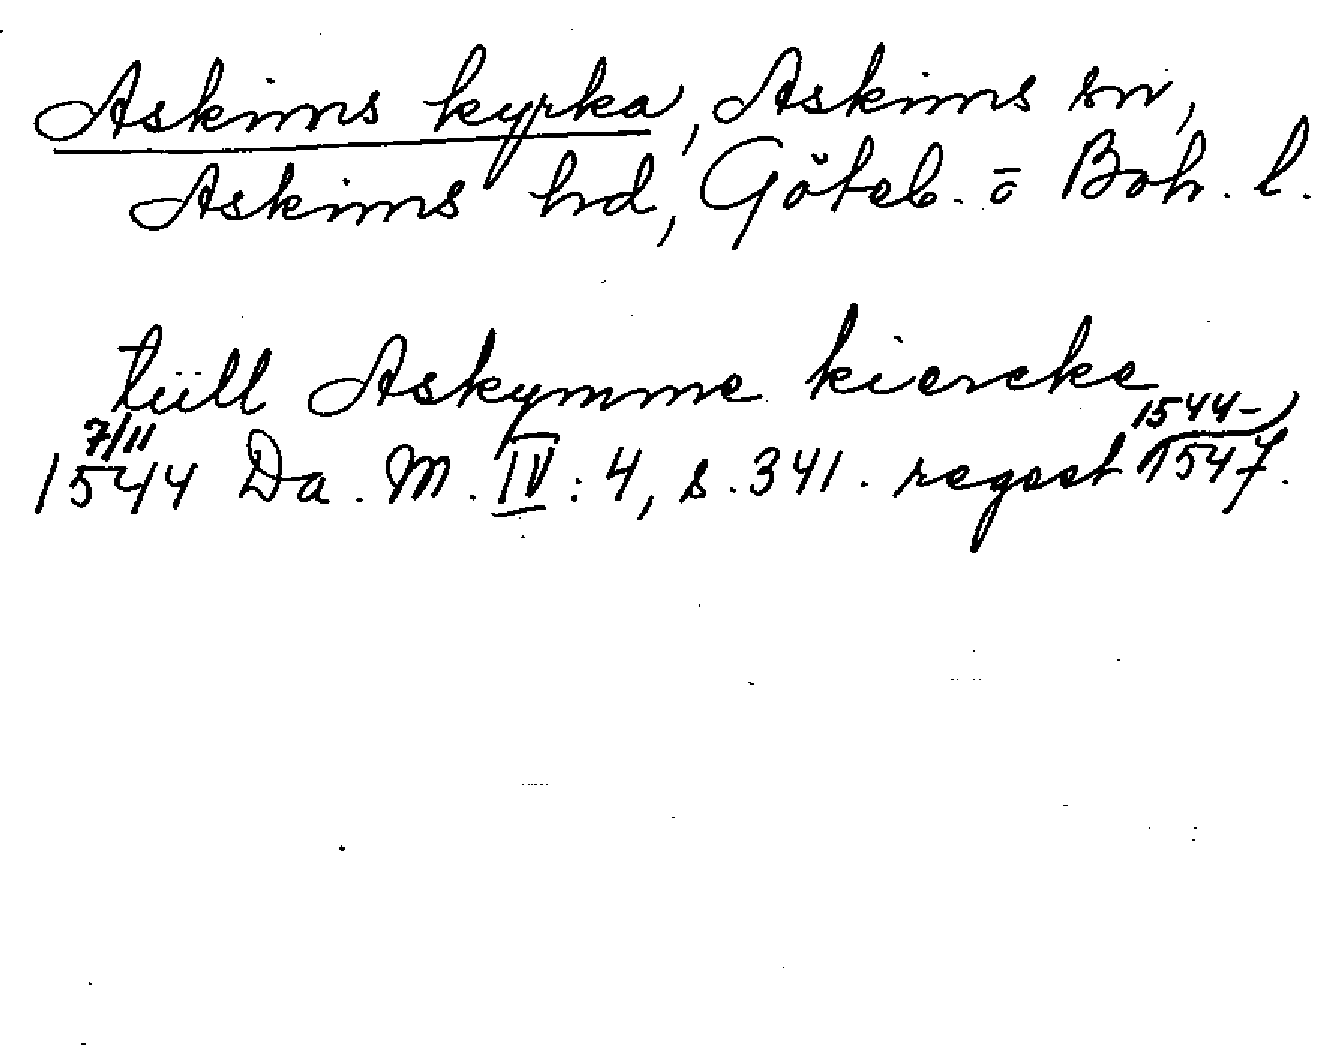 Askims kyrka, Askims sn,
Askims hd, Göteb. o Boh. l.
tüll Askymme kiercke
7/11 1544-
1544 Da. M. IV: 4, s. 341. regest 1547.